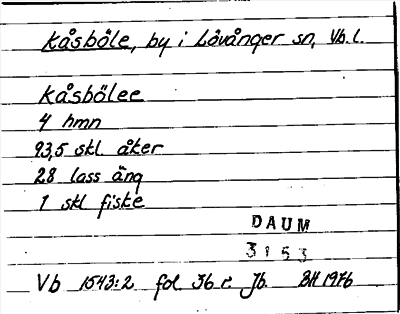 Kåsböle, by i Lövånger sn, Vb. l.
Kåsbölee
4 hmn
93,5 skl. åker
28 lass äng
1 skl fiske
DAUM
3153
Vb 1543:2 fol 36 r. Jb. BH 1976